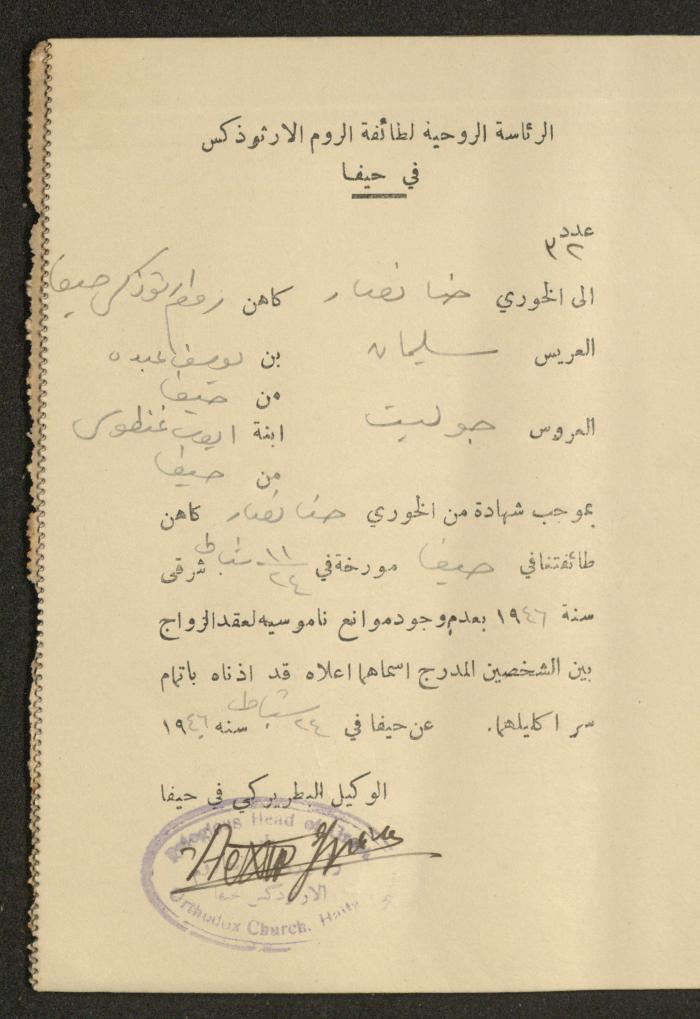 الرئاسة الروحية لطائفة الروم الارثوذكس
في حيفا
عدد
٣٢
الى الخوري حنا نصار كاهن روم ارثوذكس حيفا
العريس سليمان بن يوسف عبده
من حيفا
العروس جوليت ابنة ايوب غنطوس
من حيفا
بموجب شهادة من الخوري حنا نصار كاهن
طائفتنا في حيفا مورخة في ١١/٢٤ شباط شرقي
سنة ١٩٤٦ بعدم وجود موانع ناموسيه لعقد الزواج
بين الشخصين المدرج اسماهما اعلاه قد اذناه باتمام
سر اكليلهما. عن حيفا في ٢٤ شباط سنه ١٩٤٦
الوكيل البطريركي في حيفا
Religious Head of
Orthodox Church. Haifa